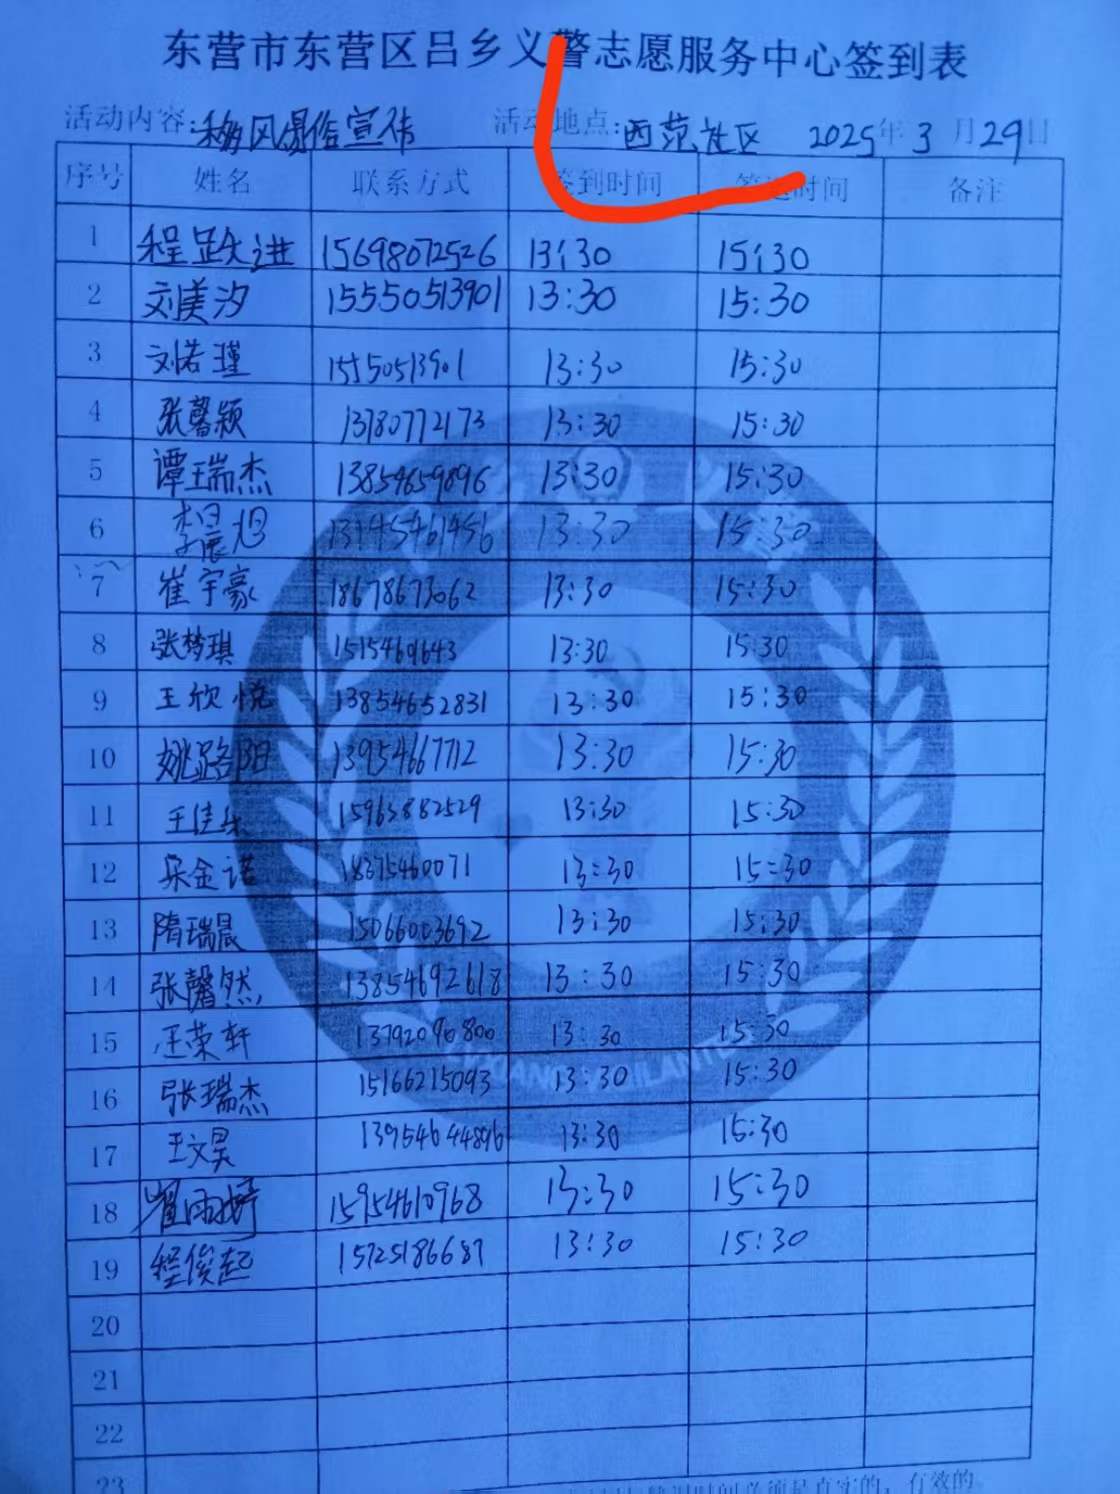 东营市东营区吕乡义警志愿服务中心签到表
活动内容:移风易俗宣传 活动地点:西范社区 2025年3月29日
序号 姓名 联系方式 签到时间 签退时间 备注
1 程跃进 15698072526 13:30 15:30
2 刘美汐 15550513901 13:30 15:30
3 刘若瑾 15550513901 13:30 15:30
4 张馨颖 13780772173 13:30 15:30
5 谭瑞杰 13854659896 13:30 15:30
6 13:30 15:30
7 崔宇豪 18678673062 13:30 15:30
8 张梦琪 13:30 15:30
9 王欣悦 13854652831 13:30 15:30
10 姚路阳 13:30 15:30
11 王佳乐 15963882529 13:30 15:30
12 金诺 18375460071 13:30 15:30
13 隋瑞晨 15066003692 13:30 15:30
14 张馨然 13854692618 13:30 15:30
15 荣轩 13792090800 13:30 15:30
16 张瑞杰 15166215093 13:30 15:30
17 王文昊 13954644896 13:30 15:30
18 15954610968 13:30 15:30
19 程俊起 15725186687 13:30 15:30
20
21
22
23
真实的,有效的